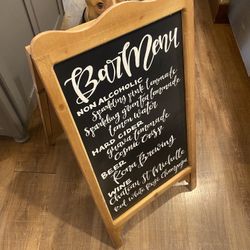 Bar Menu
NON ALCOHOLIC
Sparkling pink lemonade
Sparkling green tea lemonade
Lemon Water
HARD CIDER
Guava Lemonade
Cosmic Crisp
BEER
Kona Brewing
WINE
Chateau St Michelle
Red White Rosé Champagne